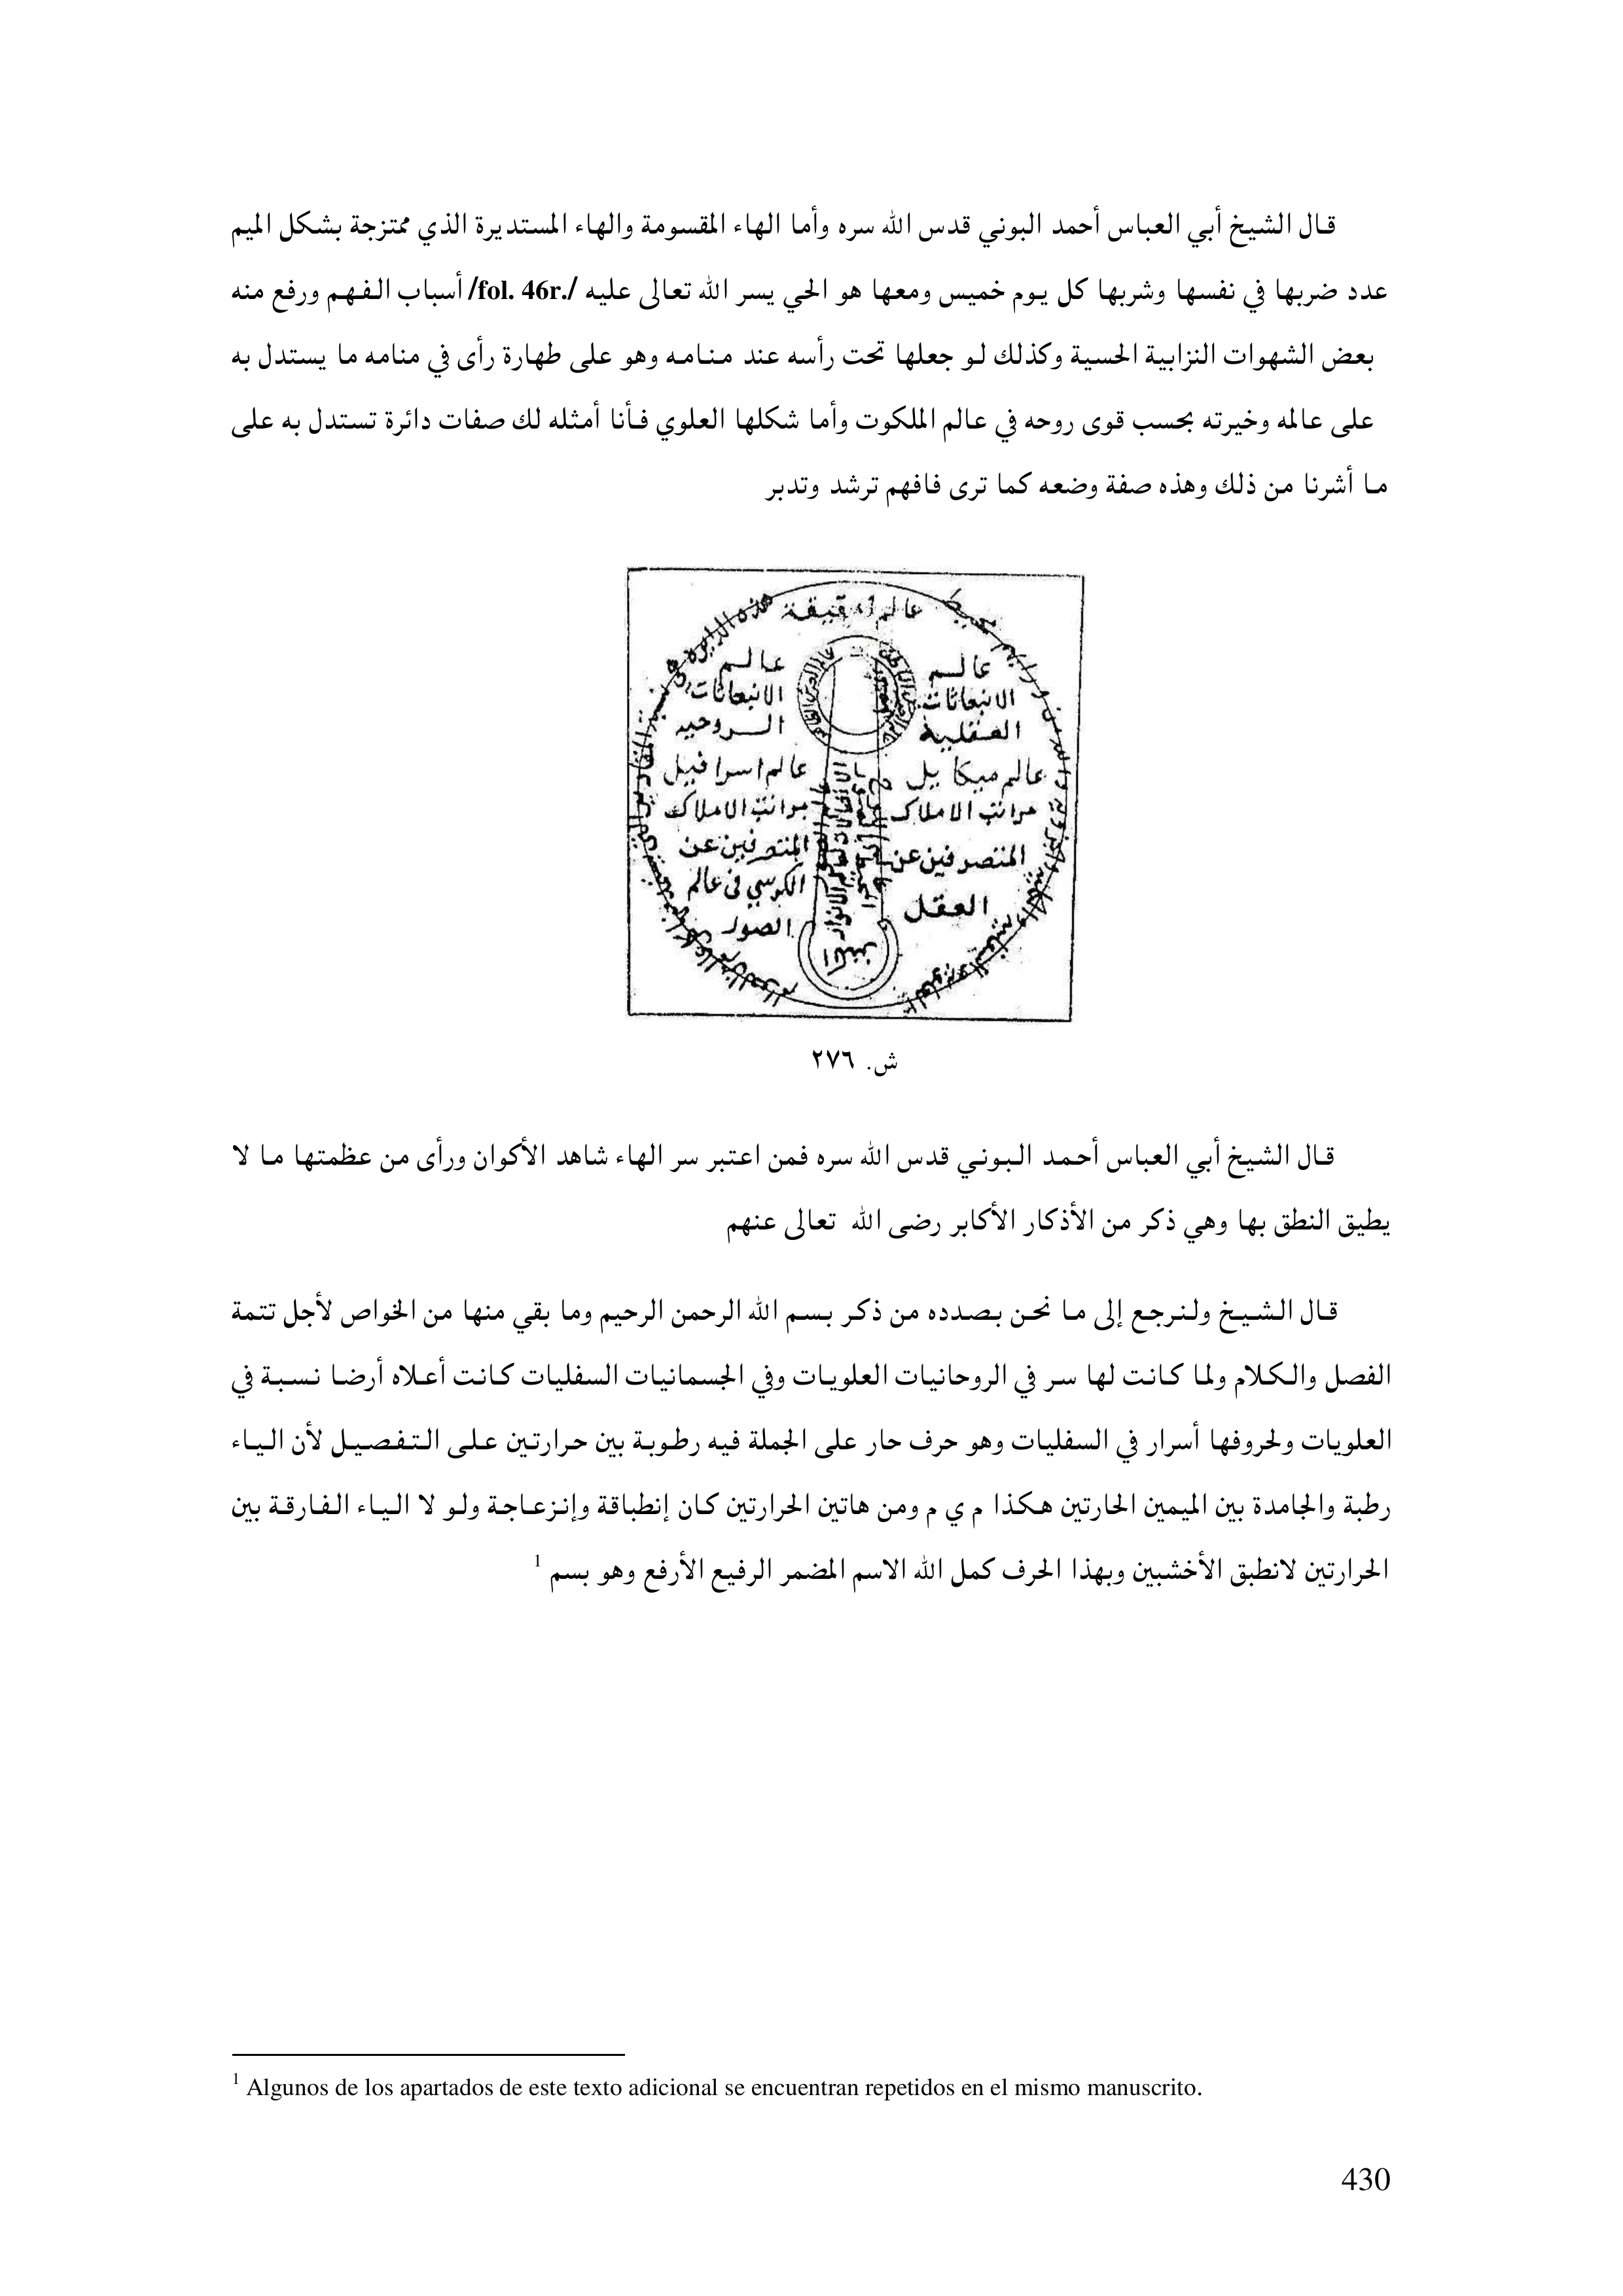 قال الشيخ أبي العباس أحمد البوني قدس الله سره وأما الهاء المقسومة والهاء المستديرة الذي ممتزجة بشكل الميم
عدد ضربها في نفسها وشربها كل يوم خميس ومعها هو الحي يسر الله تعالى عليه /fol. 46r./ أسباب الفهم ورفع منه
بعض الشهوات النزابية الحسية وكذلك لو جعلها تحت رأسه عند منامه وهو على طهارة رأى في منامه ما يستدل به
على عالمه وخيرته بحسب قوى روحه في عالم الملكوت وأما شكلها العلوي فأنا أمثله لك صفات دائرة تستدل به على
ما أشرنا من ذلك وهذه صفة وضعه كما ترى فافهم ترشد وتدبر
عالم
عالم
الانبعاثات
العقلية
عالم ميكاييل
مراتب الاملاك
المتصرفين عن
العقل
عالم
الانبعاثات
الروحيه
عالم اسرافيل
مراتب الاملاك
المتصرفين عن
الكرسي فى عالم
الصور
ش. ٢٧٦
قال الشيخ أبي العباس أحمد البوني قدس الله سره فمن اعتبر سر الهاء شاهد الأكوان ورأى من عظمتها ما لا
يطيق النطق بها وهي ذكر من الأذكار الأكابر رضى الله تعالى عنهم
قال الشيخ ولنرجع إلى ما نحن بصدده من ذكر بسم الله الرحمن الرحيم وما بقي منها من الخواص لأجل تتمة
الفصل والكلام ولما كانت لها سر في الروحانيات العلويات وفي الجسمانيات السفليات كانت أعلاه أرضا نسبة في
العلويات ولحروفها أسرار في السفليات وهو حرف حار على الجملة فيه رطوبة بين حرارتين على التفصيل لأن الياء
رطبة والجامدة بين الميمين الحارتين هكذا م ي م ومن هاتين الحرارتين كان إنطباقة وإنزعاجة ولو لا الياء الفارقة بين
الحرارتين لانطبق الأخشبين وبهذا الحرف كمل الله الاسم المضمر الرفيع الأرفع وهو بسم 1
1 Algunos de los apartados de este texto adicional se encuentran repetidos en el mismo manuscrito.
430